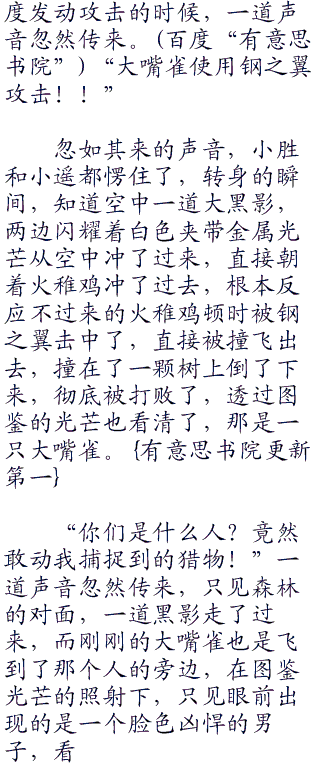 度发动攻击的时候，一道声
音忽然传来。(百度“有意思
书院”)“大嘴雀使用钢之翼
攻击！！”
忽如其来的声音，小胜
和小遥都愣住了，转身的瞬
间，知道空中一道大黑影，
两边闪耀着白色夹带金属光
芒从空中冲了过来，直接朝
着火稚鸡冲了过去，根本反
应不过来的火稚鸡顿时被钢
之翼击中了，直接被撞飞出
去，撞在了一颗树上倒了下
来，彻底被打败了，透过图
鉴的光芒也看清了，那是一
只大嘴雀。{有意思书院更新
第一}
“你们是什么人？竟然
敢动我捕捉到的猎物！”一
道声音忽然传来，只见森林
的对面，一道黑影走了过
来，而刚刚的大嘴雀也是飞
到了那个人的旁边，在图鉴
光芒的照射下，只见眼前出
现的是一个脸色凶悍的男
子，看